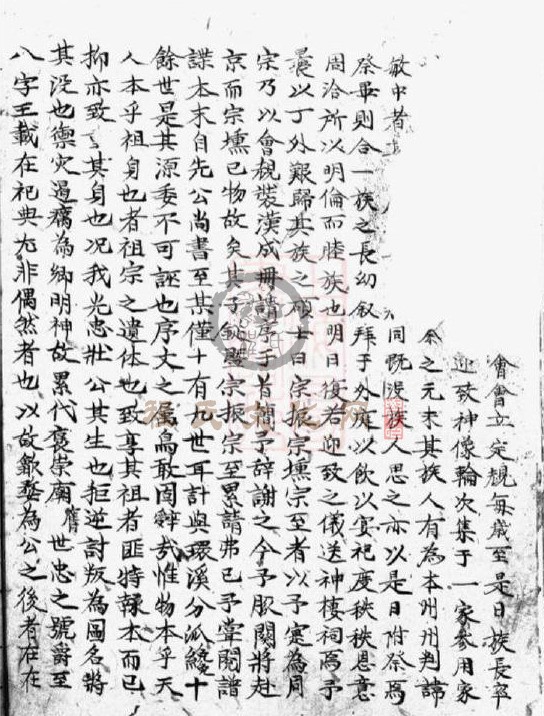 會會立定規每歲至是日族長率
迎致神像輪次集于一家參用家
祭之元末其族人有為本州州判諱
敏中者 同既沒族人思之亦以是日附祭焉
祭畢則合一族之長幼叙拜于外庭以飲以宴祀度秩秩恩意
周洽所以明倫而睦族也明日復若迎致之儀送神棲祠焉予
曩以丁外艱歸其族之碩士曰宗振宗壎宗至者以予忝為同
宗乃以會規裝潢成冊請予弁首簡予辭謝之今予服闋將赴
京而宗壎已物故矣其子 暨宗振宗至累請弗已予嘗閱譜
諜本末自先公尚書至某僅十有九世耳計與環溪分派纔十
餘世是其源委不可誣也序文之屬烏敢固辭哉惟物本乎天
人本乎祖身也者祖宗之遺体也致享其祖者匪特報本而已
抑亦致 其身也况我光忠壯公其生也拒逆討叛為國名將
其没也禦灾遏癘為鄉明神故累代褒崇廟 世忠之號爵至
八字王載在祀典尤非偶然者也以故 為公之後者在在